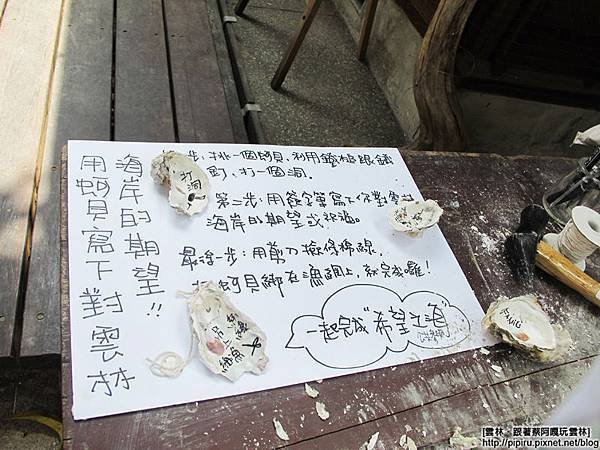 用蚵貝寫下對雲林
海岸的期望!!
步:挑一個蚵貝,利用鐵槌跟鐵
打一個洞.
第二步:用簽字筆寫下你對雲林
海岸的期望或祝福.
最後一步:用剪刀撿條棉線,
蚵貝綁在漁網上,就完成囉!
一起完成"希望之海"
打洞
[雲林。跟著蔡阿嘎玩雲林]
[http://pipiru.pixnet.net/blog]